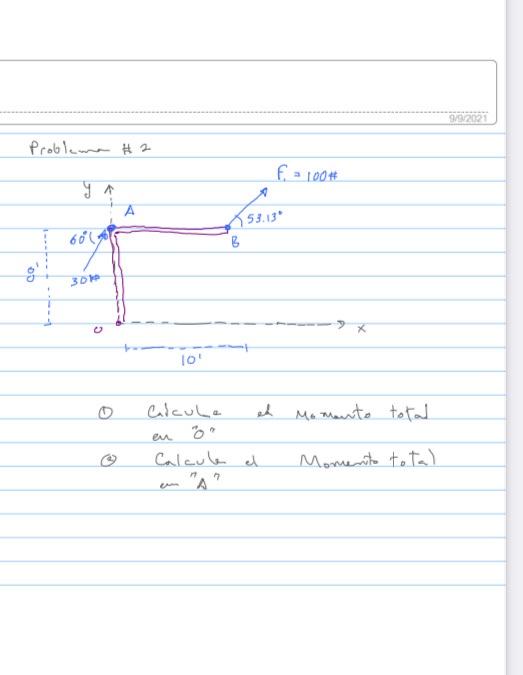 9/9/2021
Problema # 2
F₁ = 100#
y
A
53.13°
60°
B
8'
30#
O
x
10'
① Calcule el Momento total
en "O"
② Calcule el Momento total
en "A"